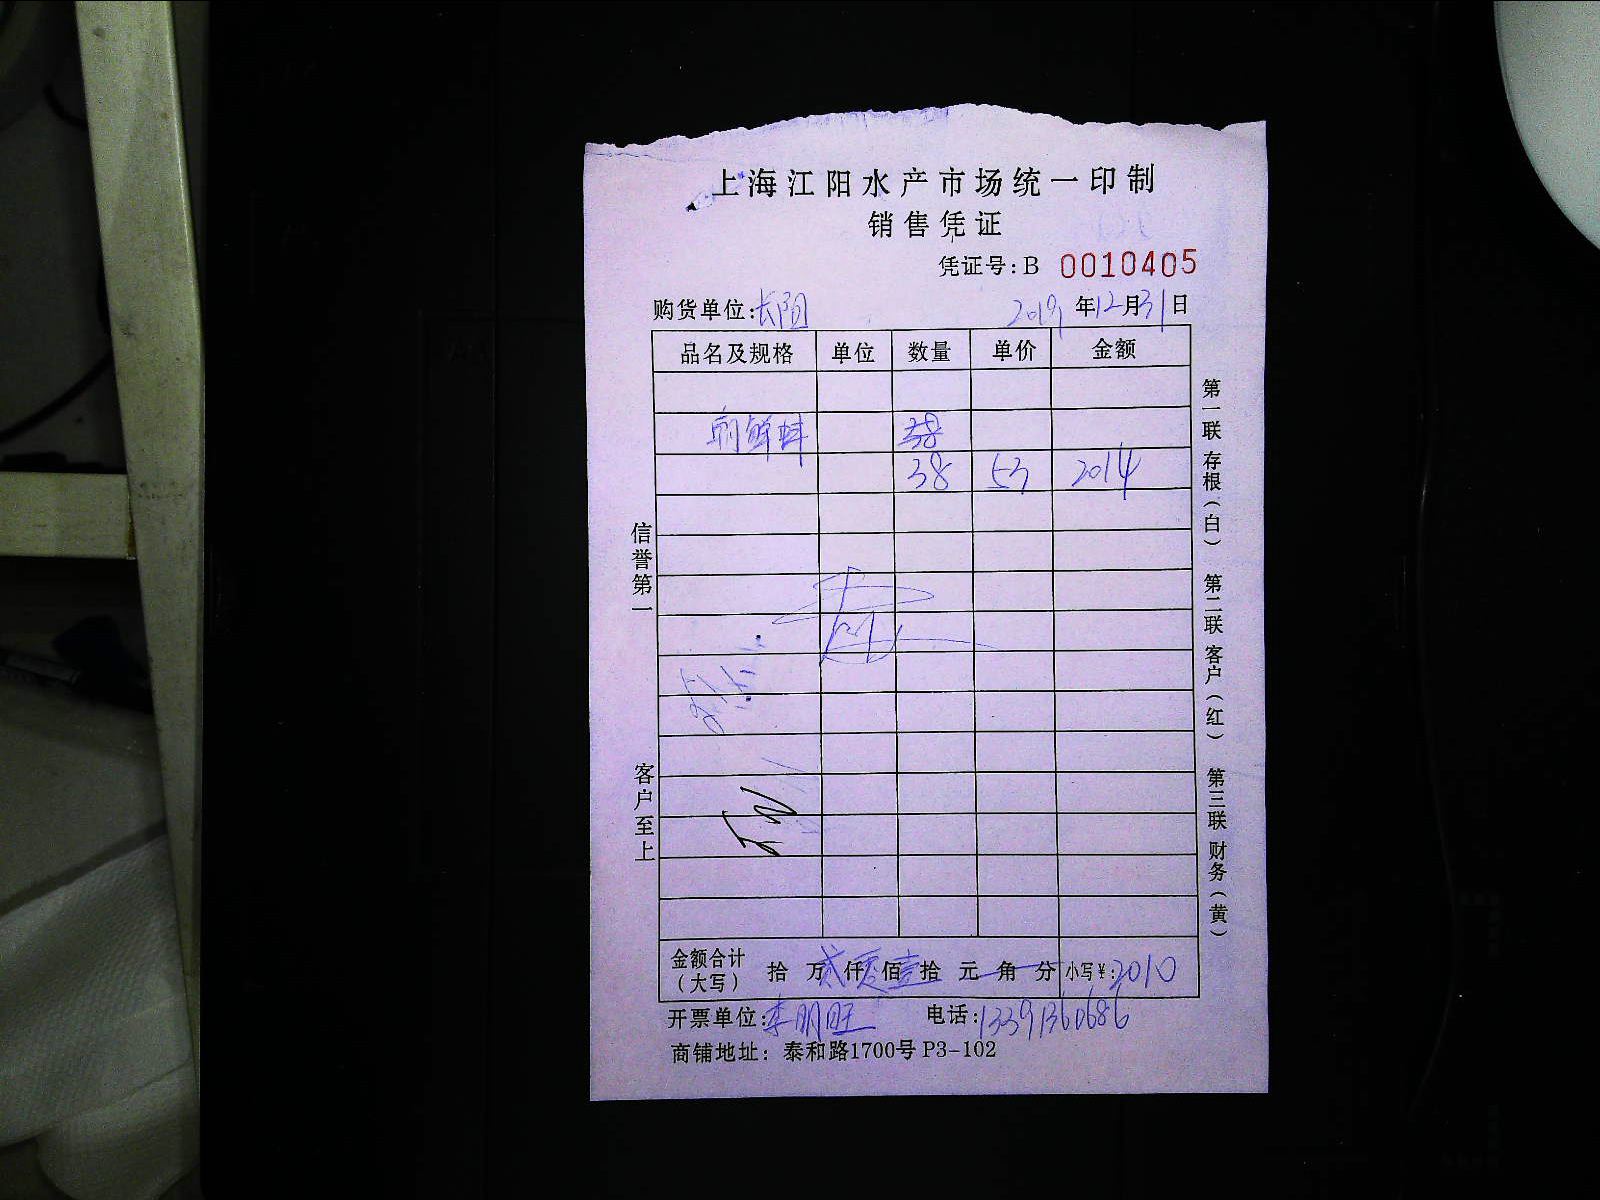 上海江阳水产市场统一印制
销售凭证
凭证号：B 0010405
购货单位：长阳 2019年12月31日
品名及规格 单位 数量 单价 金额
朝鲜蚌
38 53 2014
信誉第一
客户至上
第一联 存根（白） 第二联 客户（红） 第三联 财务（黄）
金额合计（大写） 拾万贰仟零佰壹拾元角分 小写￥：2010
开票单位：李明旺 电话：13391360686
商铺地址：泰和路1700号 P3-102